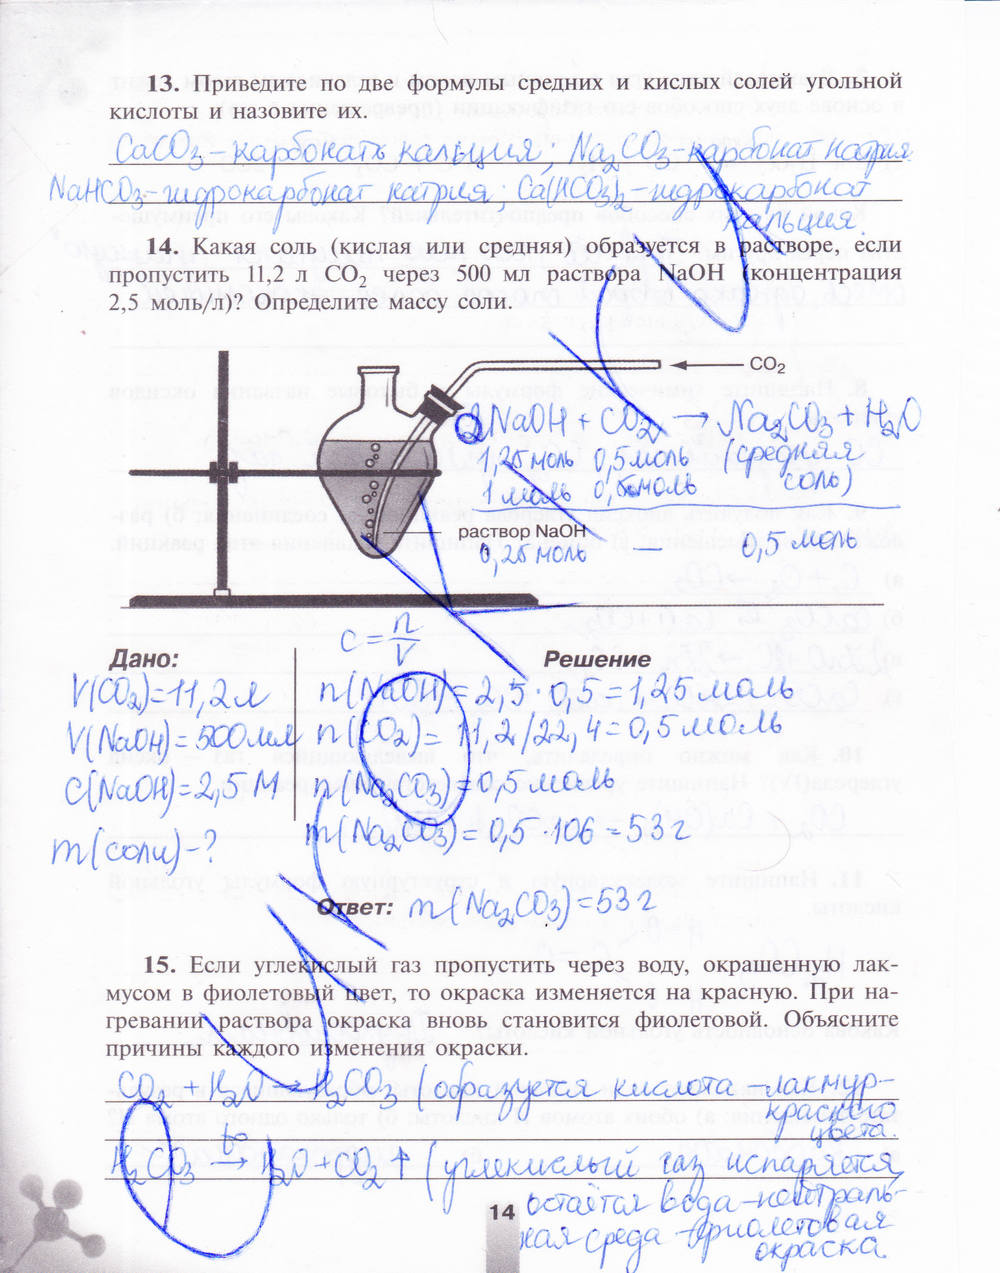 13. Приведите по две формулы средних и кислых солей угольной
кислоты и назовите их.
CaCO₃ – карбонать кальция; Na₂CO₃ – карбонат натрия
NaHCO₃ – гидрокарбонат натрия; Ca(HCO₃)₂ – гидрокарбонат
кальция.
14. Какая соль (кислая или средняя) образуется в растворе, если
пропустить 11,2 л CO₂ через 500 мл раствора NaOH (концентрация
2,5 моль/л)? Определите массу соли.
CO₂
2NaOH + CO₂ → Na₂CO₃ + H₂O
1,25 моль 0,5 моль (средняя
1 моль 0,5 моль соль)
раствор NaOH
0,25 моль — 0,5 моль
c = n/V
Дано: Решение
V(CO₂) = 11,2 л n(NaOH) = 2,5 · 0,5 = 1,25 моль
V(NaOH) = 500 мл n(CO₂) = 11,2/22,4 = 0,5 моль
C(NaOH) = 2,5 М n(Na₂CO₃) = 0,5 моль
m(соли) – ? m(Na₂CO₃) = 0,5 · 106 = 53 г
Ответ: m(Na₂CO₃) = 53 г
15. Если углекислый газ пропустить через воду, окрашенную лак-
мусом в фиолетовый цвет, то окраска изменяется на красную. При на-
гревании раствора окраска вновь становится фиолетовой. Объясните
причины каждого изменения окраски.
CO₂ + H₂O → H₂CO₃ (образуется кислота – лакмус-
красного
цвета.
H₂CO₃ t° → H₂O + CO₂ ↑ (углекислый газ испаряется,
остаётся вода – нейтраль-
ная среда – фиолетовая
окраска.
14